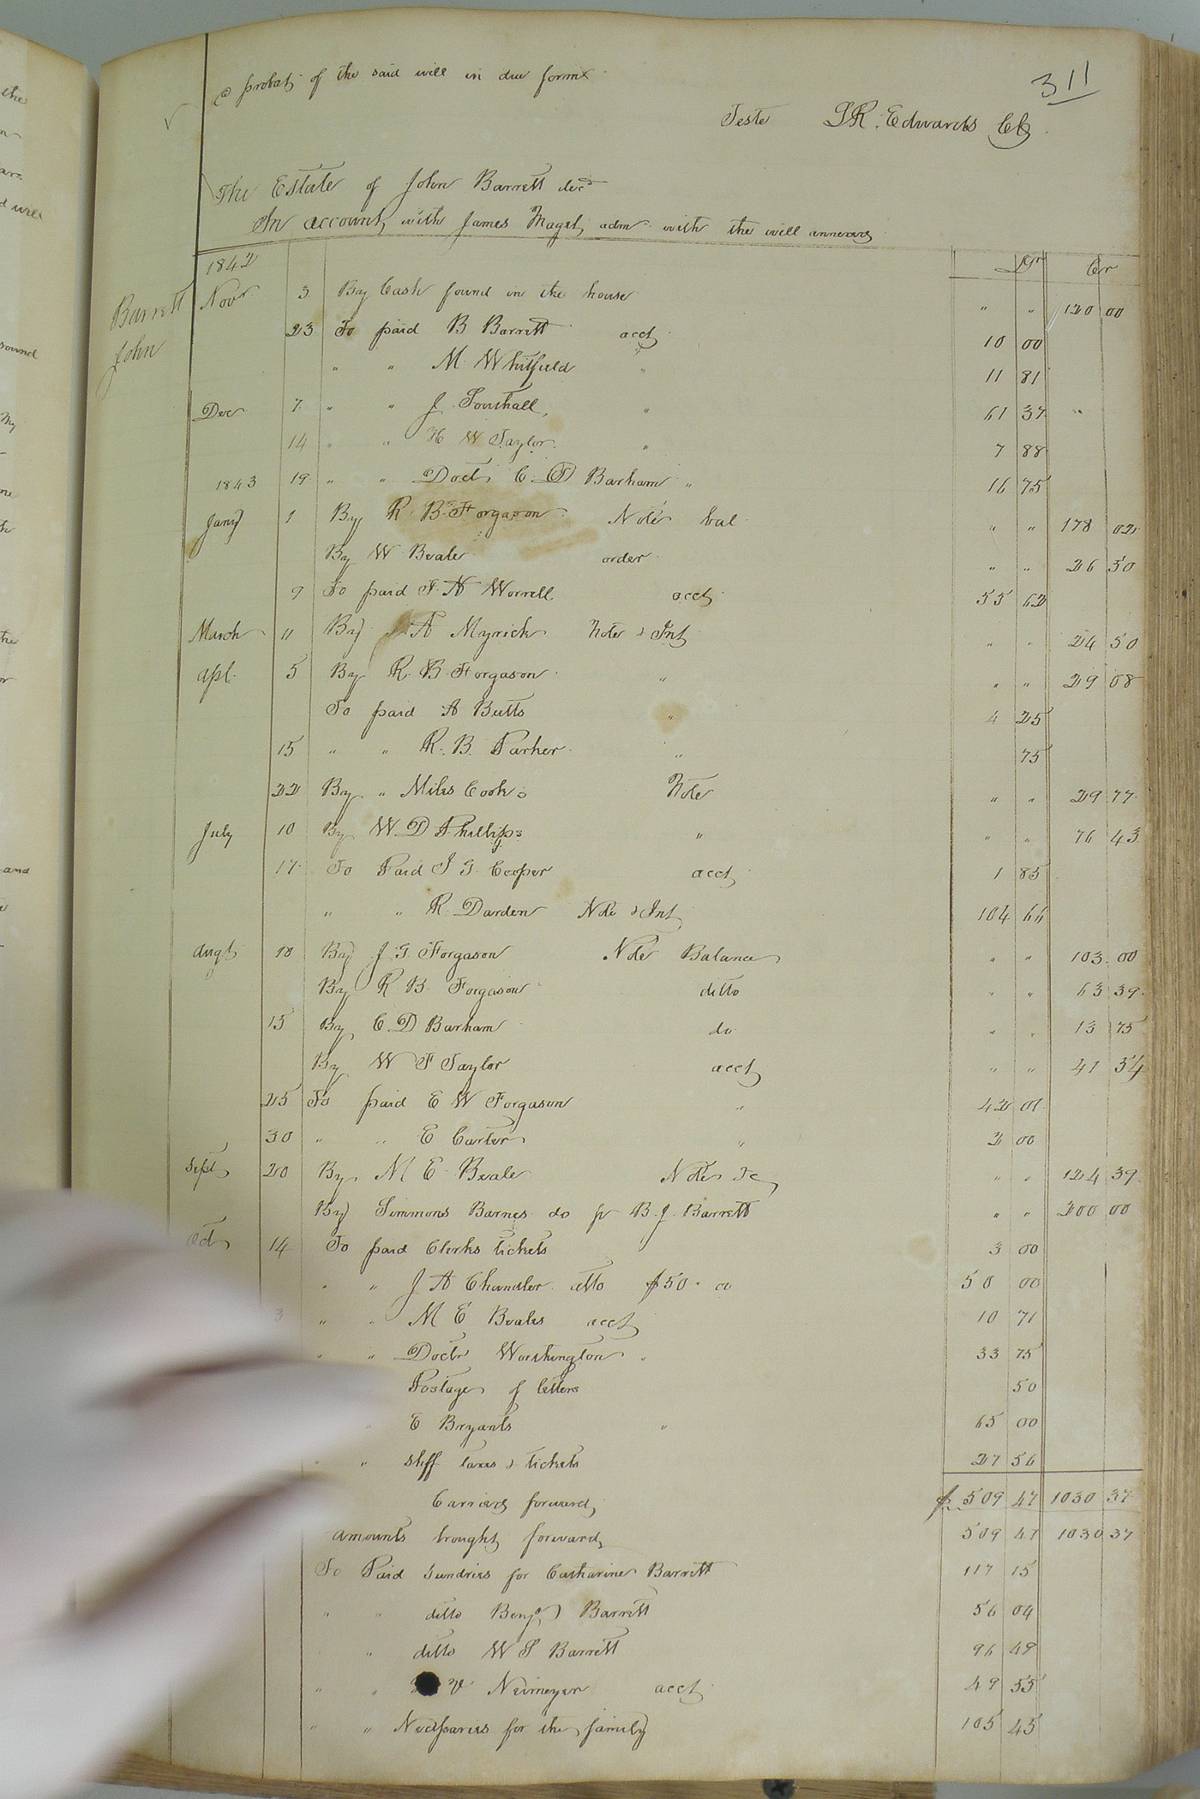 311
@ probate of the said will in due form
Teste L R. Edwards Clk
The Estate of John Barrett decd
In account with James Maget adm with the will annexed
Barrett
John
1842 Dr Cr
Novr 3 By Cash found in the house " " 120 00
23 To paid B Barrett acct 10 00
" " M Whitfield " 11 81
Dec 7 " " J. " 61 37
14 " " H W Taylor " 7 88
1843 19 " " Doct C D Barham " 16 75
Jany 1 By R B Forgason Note bal " " 178 02
By W Beale order " " 26 50
9 To paid J. N Worrell acct 55 62
March 11 By A Myrick Note & Int " " 24 50
Apl. 5 By R B Forgason " " " 29 08
To paid A Butts " 4 25
15 " " R. B. Parker " 75
22 By " Miles Cooks Note " " 29 77
July 10 By W D Phillips " " " 76 43
17 To Paid J G Cooper acct 1 85
" " R Darden Note & Int 104 66
Augt 10 By J G Forgason Note Balance " " 103 00
By R B Forgason ditto " " 63 39
15 By C D Barham do " " 13 75
By W F Taylor acct " " 41 54
25 To paid E W Forgason " 42 01
30 " " E Carter " 2 00
Sept 20 By M E Beale Note &c " " 124 39
By Simmons Barnes do pr B. J. Barrett " " 200 00
Oct 14 To paid Clerks tickets 3 00
" " J A Chandler ditto $50.00 50 00
3 " " M E Beales acct 10 71
" " Doctr Worthington " 33 75
Postage of letters 50
" E Bryants " 65 00
" " Shff taxes & tickets 27 56
Carried forward $509 47 1030 37
Amounts brought forward 509 47 1030 37
To Paid Sundries for Catharine Barrett 117 15
" " ditto Benja Barrett 56 04
" ditto W S Barrett 96 49
" " V Neimeyer acct 49 55
" " Necessaries for the family 105 45